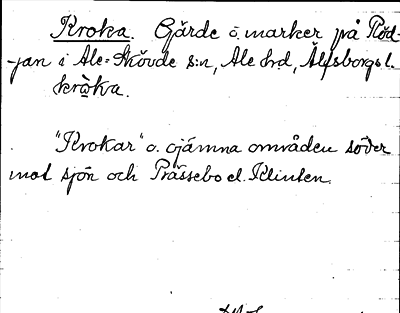 Kroka. Gärde o. marker på Röd-
jan i Ale-Skövde s:n, Ale hd, Älfsborgs l.
kròka.
"Krokar" o. ojämna områden söder
mot sjön och Prässebo el. Klinten.